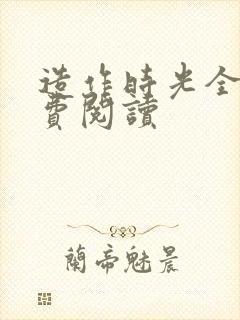 造作時光全
費閱讀
蘭帝魅晨